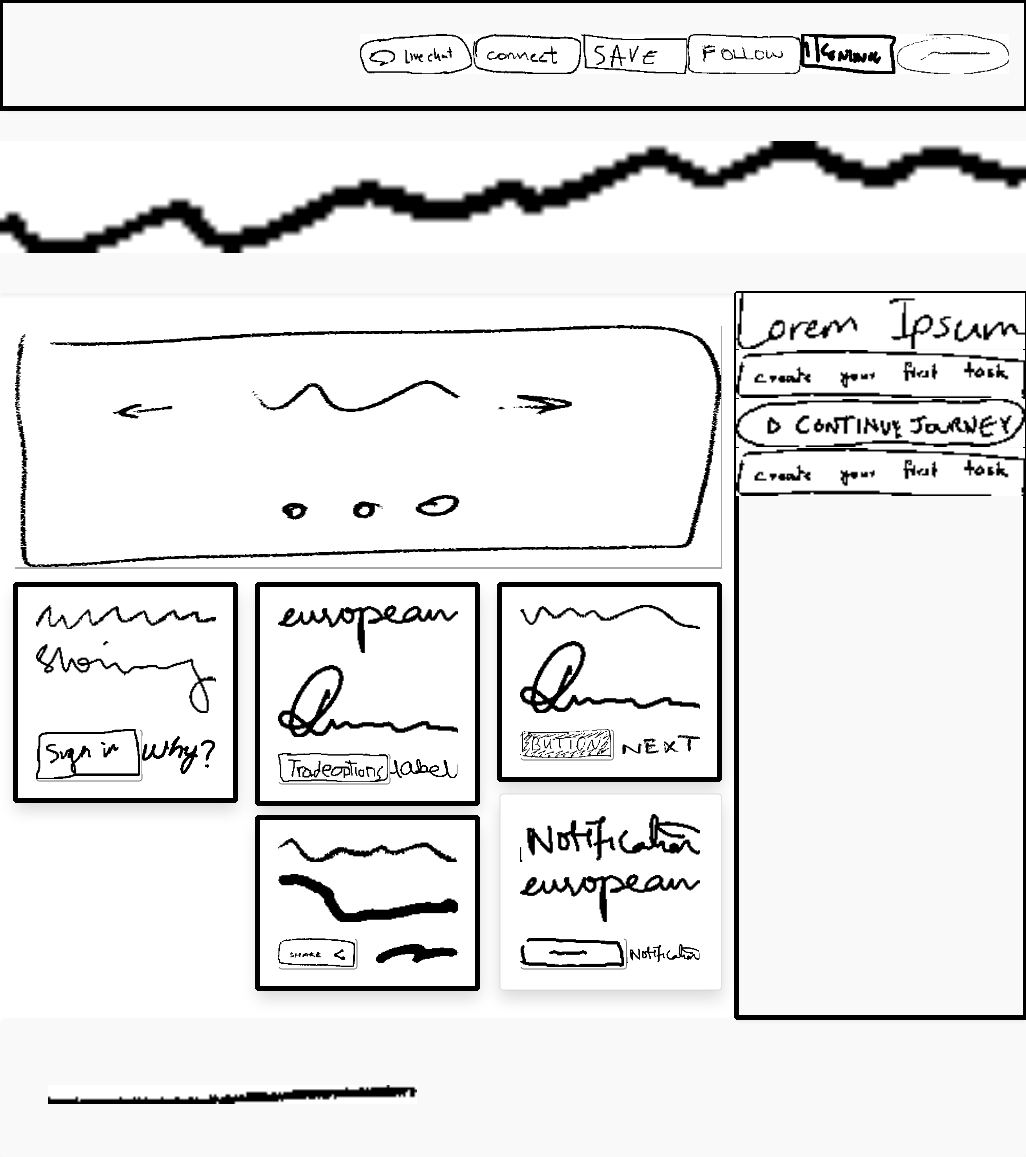 Live chat connect SAVE FOLLOW CONTINUE
Lorem Ipsum
create your first task
CONTINUE JOURNEY
create your first task
european
Sign in Why?
Tradeoptions label
BUTTON NEXT
Notification
european
SHARE
Notification